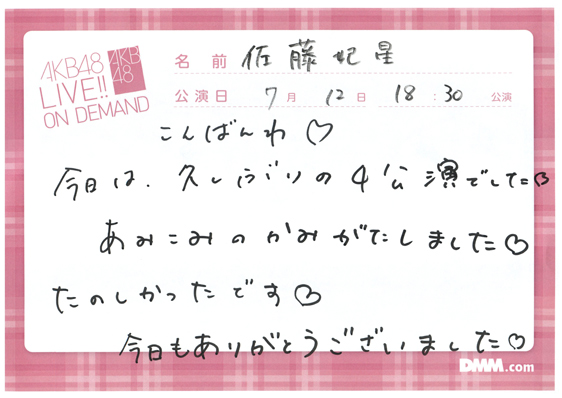 AKB48
LIVE!!
ON DEMAND
AKB
48
名前 佐藤妃星
公演日 7月 12日 18:30 公演
こんばんわ♡
今日は、久しぶりの4公演でした♡
あみこみのかみがたしました♡
たのしかったです♡
今日もありがとうございました♡
DMM.com